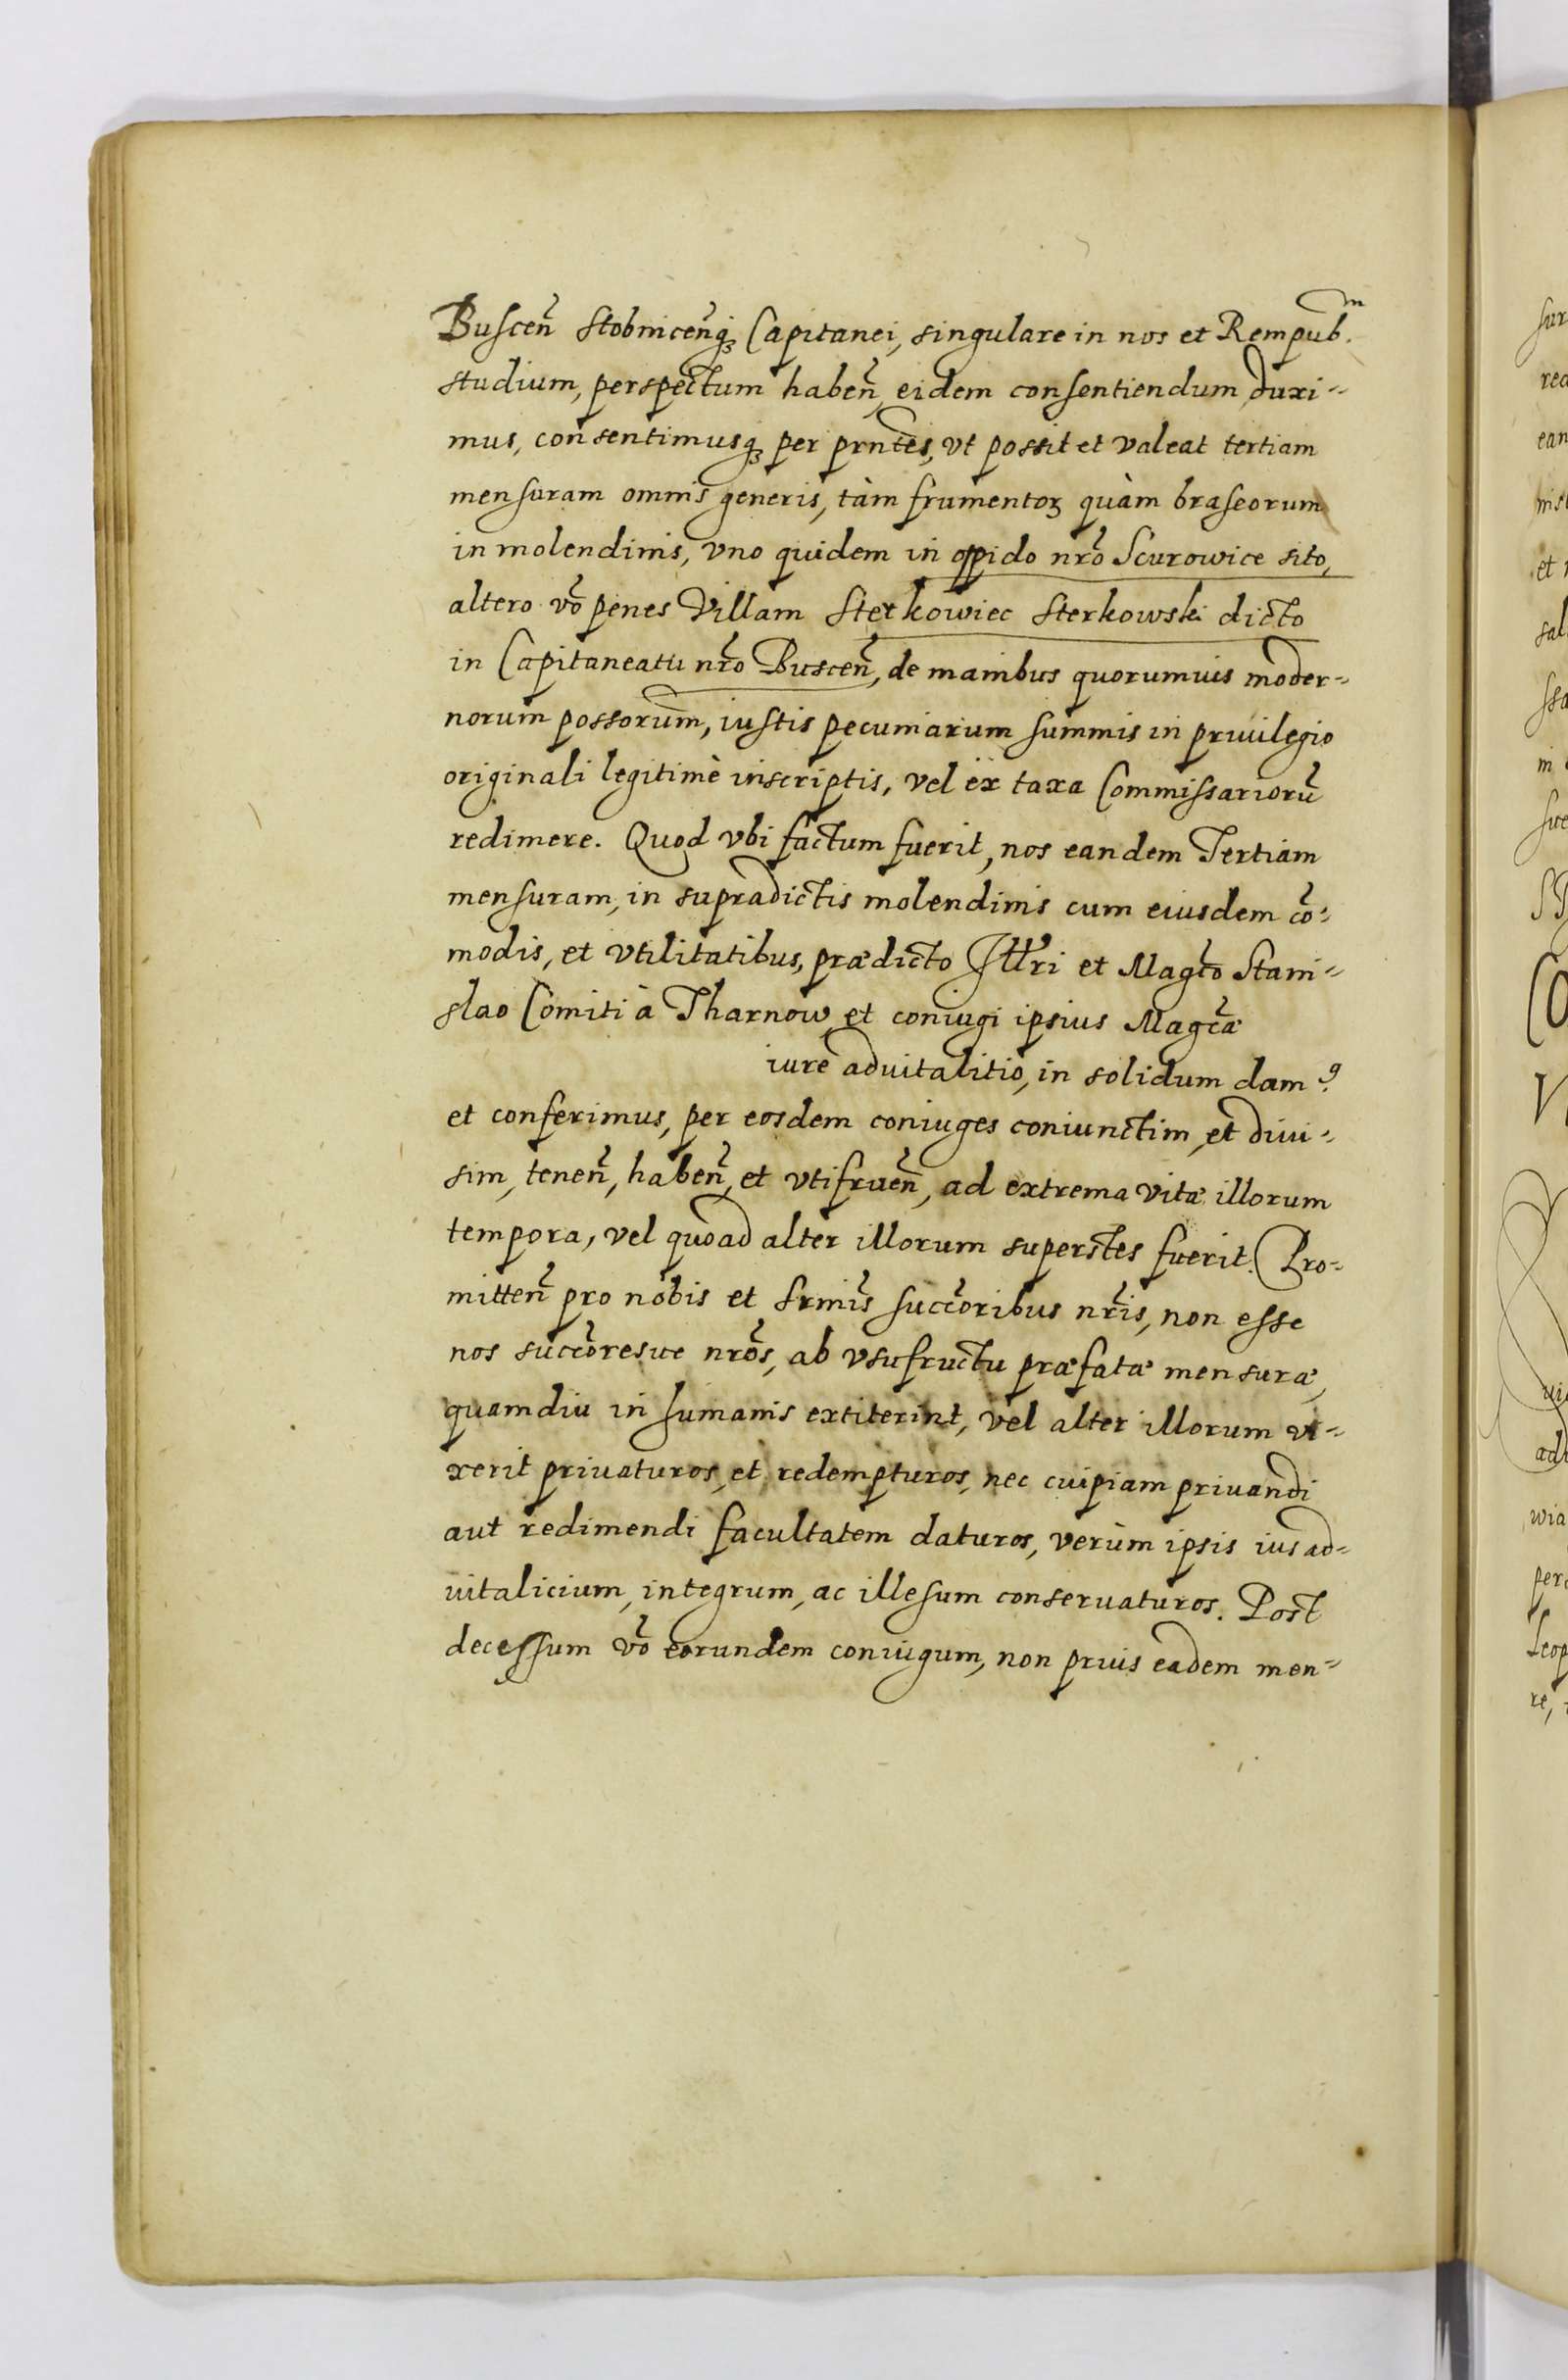 Buscen̄ Stobnicen̄q₃ Capitanei, singulare in nos et Rempub.ᵐ
studium, perspectum haben̄, eidem consentiendum duxi=
mus, consentimusq₃ per prn̄tes, vt possit et valeat tertiam
mensuram omnis generis, tàm frumentoꝝ quàm braseorum
in molendinis, vno quidem in oppido nrō Scurowice sito,
altero vō penes Villam Sterkowiec Sterkowski dicto
in Capitaneatu nrō Buscen̄, de manibus quorumuis moder=
norum possorum̄, iustis pecuniarum summis in priuilegio
originali legitimè inscriptis, vel ex taxa Commissariorū
redimere. Quod vbi factum fuerit, nos eandem Tertiam
mensuram, in supradictis molendinis cum eiusdem cō=
modis, et vtilitatibus, prædicto Illri et Magco Stani=
slao Comiti à Tharnow et coniugi ipsius Magcæ
iure aduitalitio, in solidum damꝰ
et conferimus, per eosdem coniuges coniunctim, et diui=
sim, tenen̄, haben̄, et vtifruen̄, ad extrema vitæ illorum
tempora, vel quoad alter illorum superstes fuerit. Pro=
mitten̄ pro nobis et Srmis̄ succoribus nris̄, non esse
nos succōresue nrōs, ab vsufructu præfatæ mensuræ,
quamdiu in humanis extiterint, vel alter illorum vi=
xerit priuaturos, et redempturos, nec cuipiam priuandi
aut redimendi facultatem daturos, verùm ipsis ius ad=
uitalicium, integrum, ac illesum conseruaturos. Post
decessum vō eorundem coniugum, non prius eadem men=